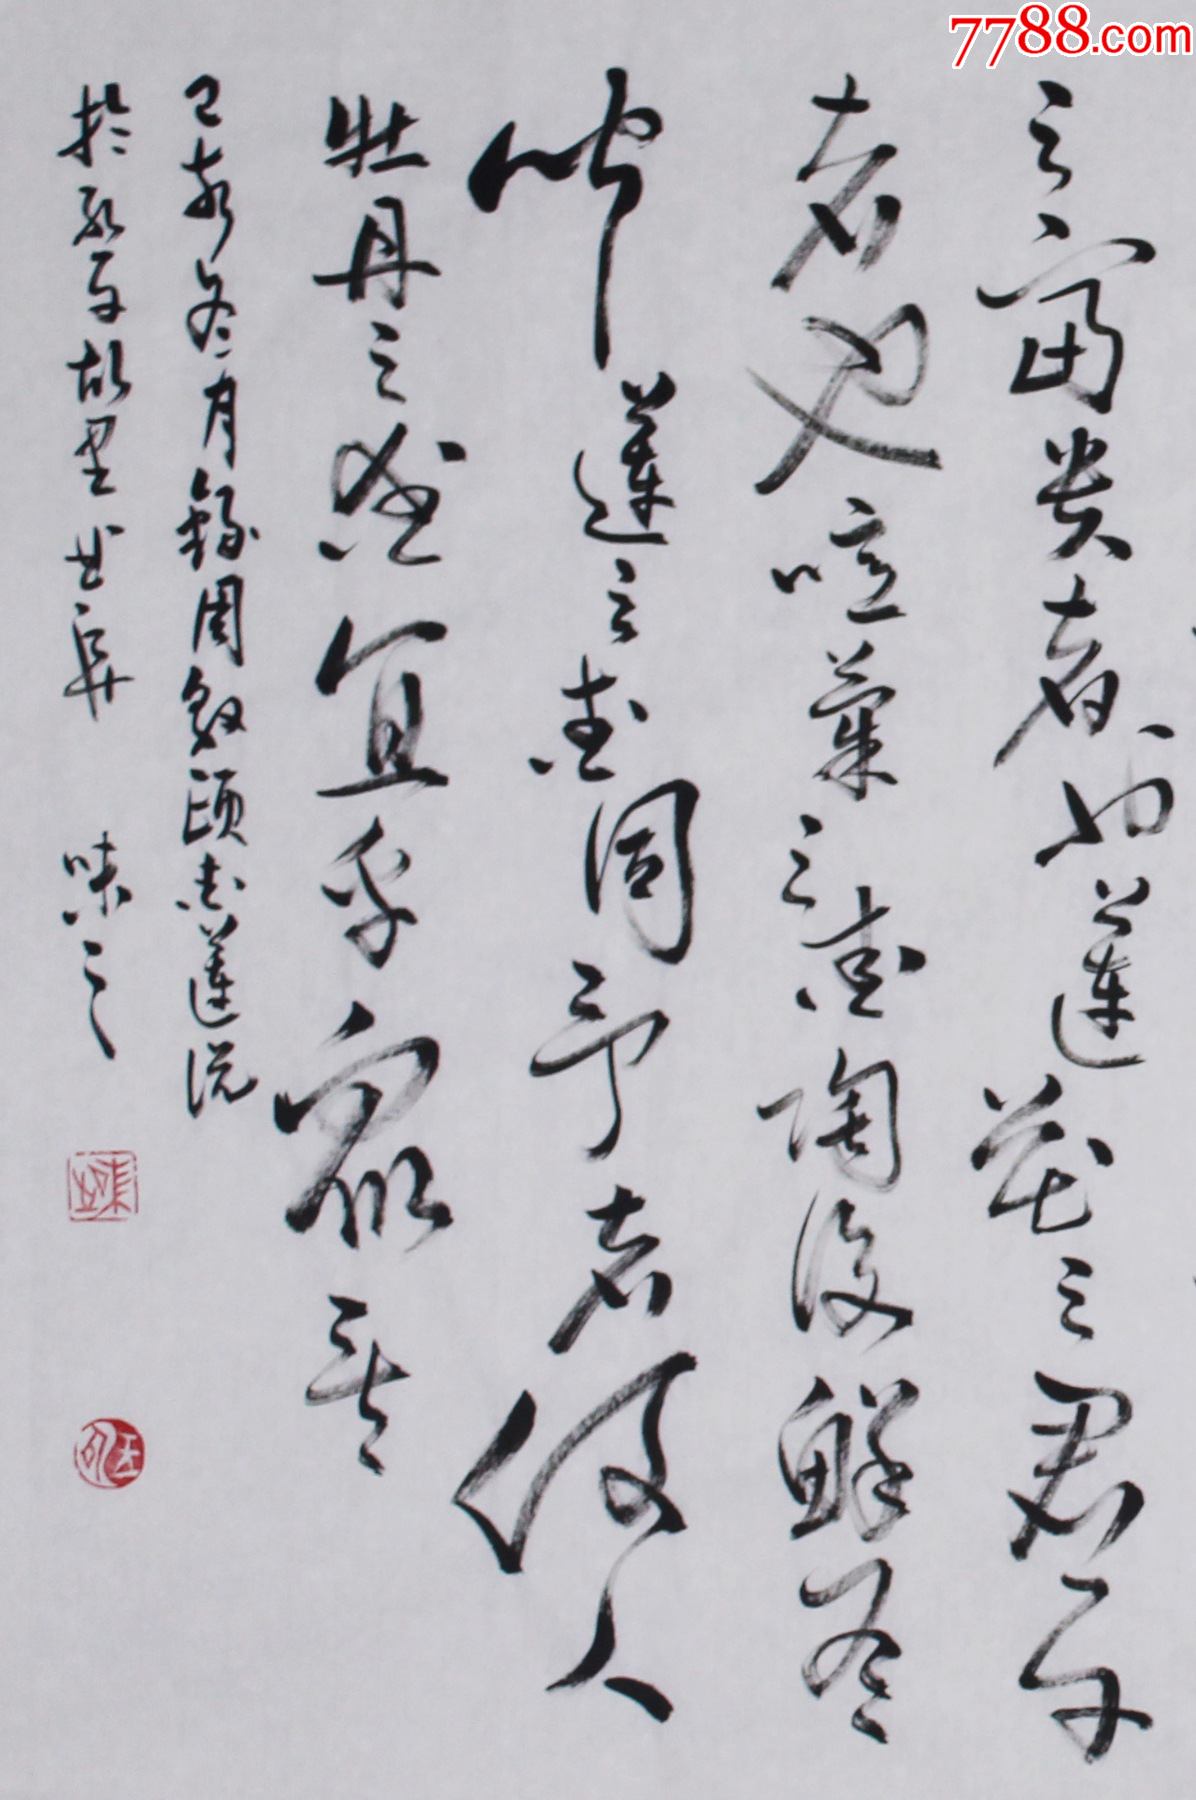 7788.com
之富貴者也蓮花之君子
者也噫菊之愛陶後鮮有
聞蓮之愛同予者何人
牡丹之愛宜乎眾矣
己亥冬月錄周敦頤愛蓮說
於孔子故里曲阜 味之